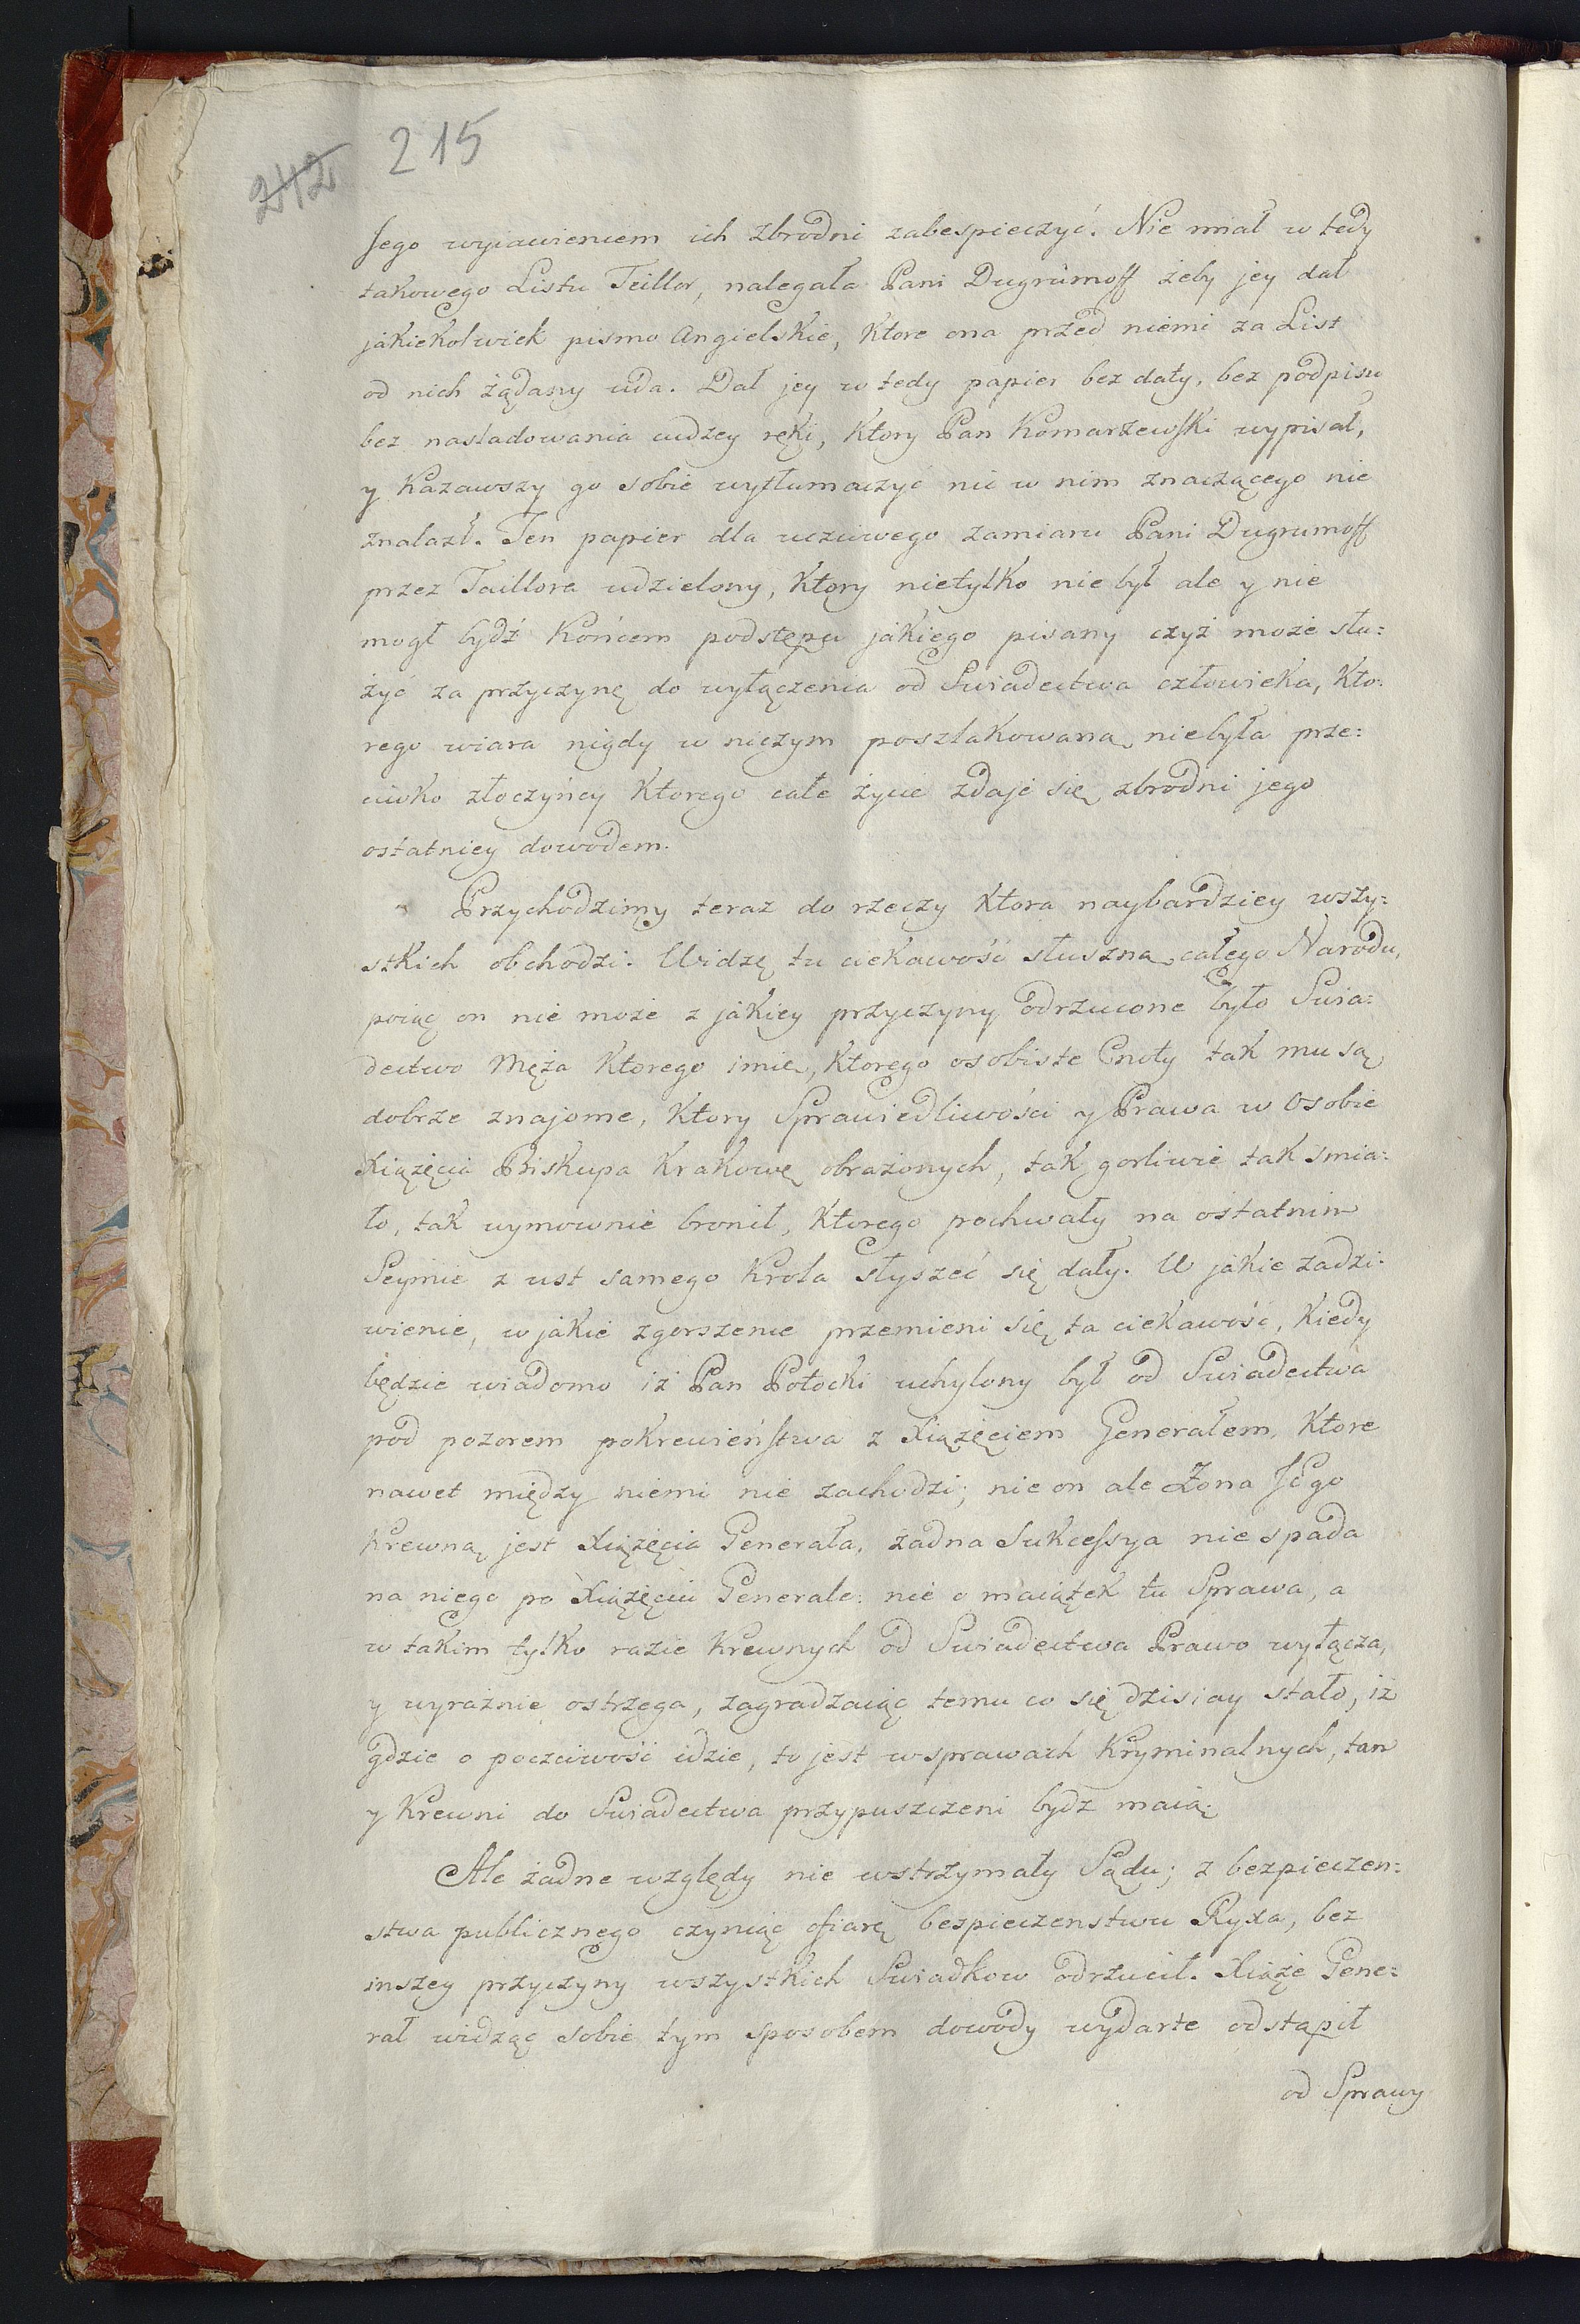 242 215
Jego wyiawieniem ich zbrodni zabespieczyć. Nie miał w tedy
takowego Listu Teillor, nalegała Pani Dugrumoff żeby jey dał
jakiekolwiek pismo Angielskie, ktore ona przed niemi za List
od nich żądany uda. Dał jey w tedy papier bez daty, bez podpisu
bez nasladowania cudzey ręki, ktory Pan Komarzewski wypisał,
y kazawszy go sobie wytłumaczyć nic w nim znaczącego nie
znalazł. Ten papier dla uczciwego zamiaru Pani Dugrumoff
przez Taillora udzielony, ktory nietylko nie był ale y nie
mogł bydź końcem podstępu jakiego pisany czyż może słu:
żyć za przyczynę do wyłączenia od Swiadectwa człowieka, kto:
rego wiara nigdy w niczym poszlakowaną niebyła prze:
ciwko złoczyńcy ktorego całe życie zdaje się zbrodni jego
ostatniey dowodem.
Przychodzimy teraz do rzeczy ktora naybardziey wszy:
stkich obchodzi. Widzę tu ciekawość słuszną całego Narodu,
poiąć on nie może z jakiey przyczyny odrzucone było Swia:
dectwo Męża ktorego imie, ktorego osobiste Cnoty tak mu są
dobrze znajome, ktory Sprawiedliwości y Prawa w Osobie
Xiążęcia Biskupa Krakowę obrażonych, tak gorliwie tak smia:
ło, tak wymownie bronił, ktorego pochwały na ostatnim
Seymie z ust samego Krola słyszeć się dały. W jakie zadzi:
wienie, w jakie zgorszenie przemieni się ta ciekawość, kiedy
będzie wiadomo iż Pan Potocki uchylony był od Swiadectwa
pod pozorem pokrewieństwa z Xiążęciem Generałem, ktore
nawet między niemi nie zachodzi; nie on ale Żona Jego
krewną jest Xiążęcia Generała, żadna Sukcessya nie spada
na niego po Xiążęciu Generale: nie o maiątek tu Sprawa, a
w takim tylko razie krewnych od Swiadectwa Prawo wyłącza,
y wyraźnie ostrzega, zagradzaiąc temu co się dzisiay stało, iż
gdzie o poczciwość idzie, to jest w sprawach Kryminalnych, tam
y krewni do Swiadectwa przypuszczeni bydz maią.
Ale żadne względy nie wstrzymały Sądu; z bezpieczen:
stwa publicznego czyniąc ofiarę bespieczenstwu Ryxa, bez
inszey przyczyny wszystkich Swiadkow odrzucił. Xiąże Gene:
rał widząc sobie tym sposobem dowody wydarte odstąpił
od Sprawy